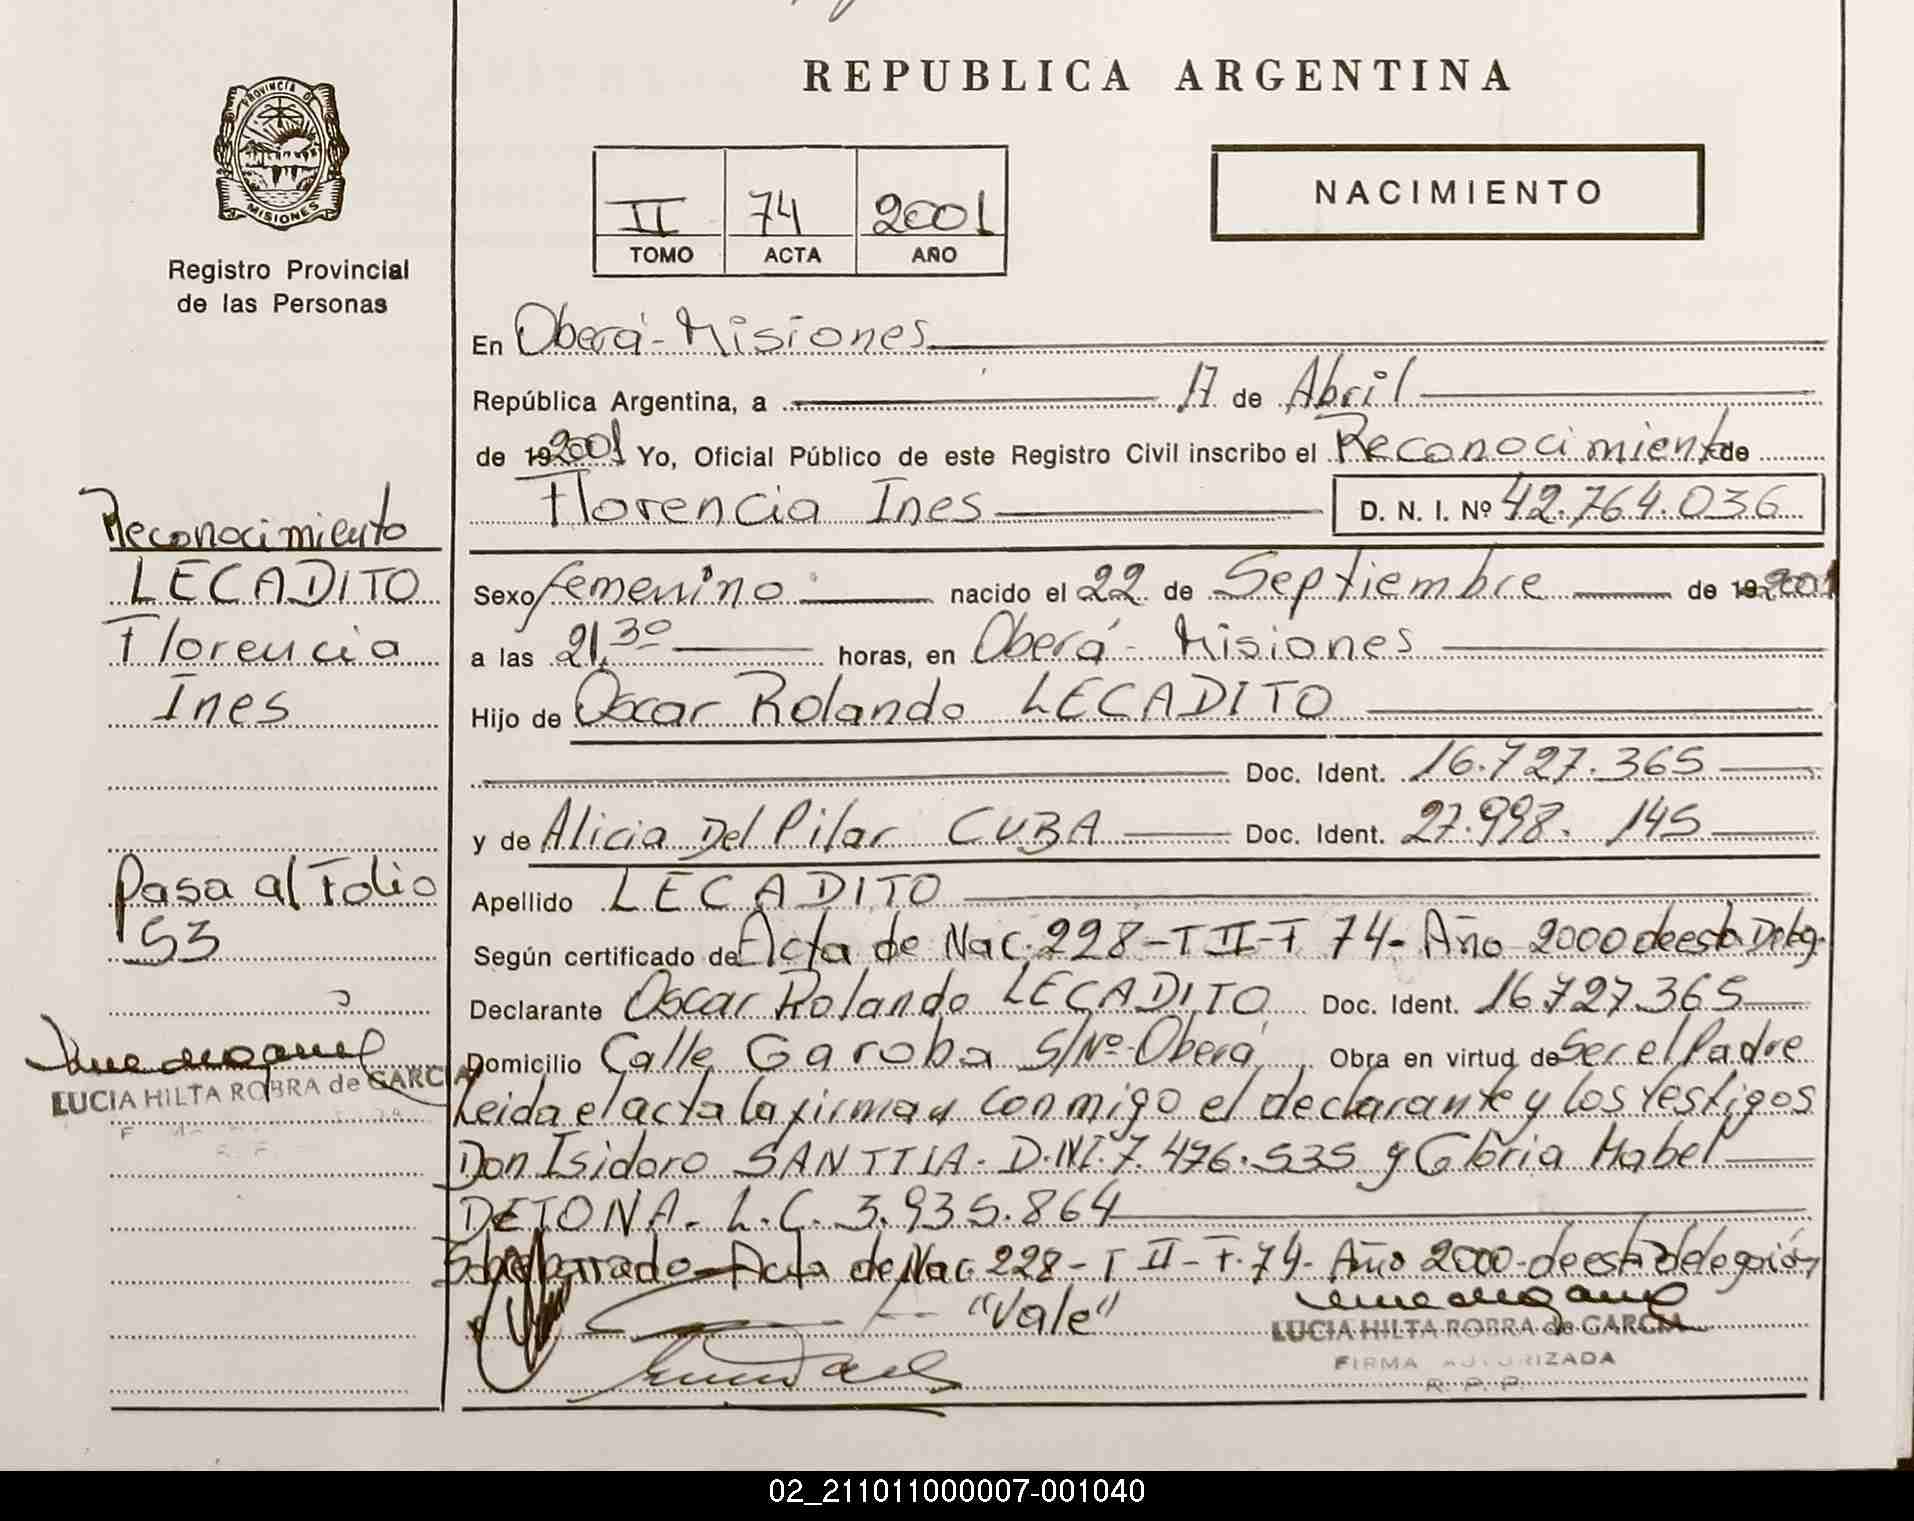 REPUBLICA ARGENTINA
PROVINCIA DE
MISIONES
Registro Provincial
de las Personas
II 74 2001
TOMO ACTA AÑO
NACIMIENTO
En Oberá - Misiones
República Argentina, a 17 de Abril
de 19 2001 Yo, Oficial Público de este Registro Civil inscribo el Reconocimiento de
Florencia Ines D. N. I. Nº 42.764.036
Sexo femenino nacido el 22 de Septiembre de 19 2001
a las 21,30 horas, en Oberá - Misiones
Hijo de Oscar Rolando LECADITO
Doc. Ident. 16.727.365
y de Alicia Del Pilar CUBA Doc. Ident. 27.998.145
Apellido LECADITO
Según certificado de Acta de Nac. 228 - T II - F 74 - Año 2000 de esta Deleg.
Declarante Oscar Rolando LECADITO Doc. Ident. 16.727.365
Domicilio Calle Garoba S/Nº - Oberá Obra en virtud de Ser el Padre
Leida el acta la firman conmigo el declarante y los testigos
Don Isidoro SANTTIA - D.N.I. 7.476.535 y Gloria Mabel
DETONA - L.C. 3.935.864
Sobreborrado - Acta de Nac. 228 - T II - F. 74 - Año 2000 - de esta delegación
"Vale"
LUCIA HILTA ROBRA de GARCIA
FIRMA AUTORIZADA
R. P. P.
Reconocimiento
LECADITO
Florencia
Ines
Pasa al Folio
53
LUCIA HILTA ROBRA de GARCIA
02_211011000007-001040